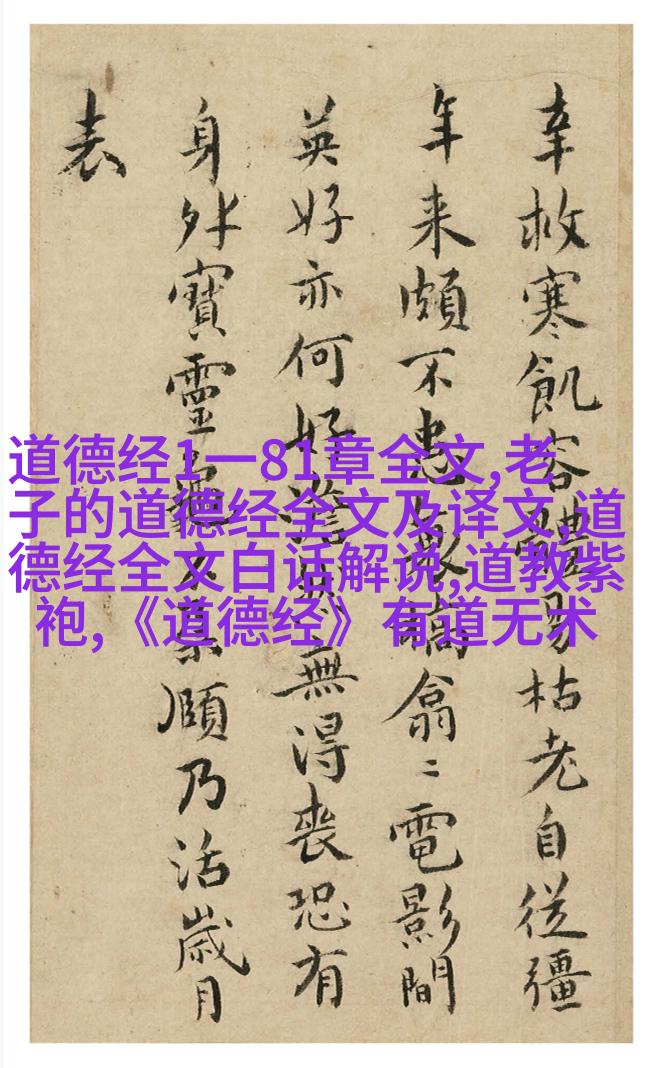 幸救寒飢容體易枯老自從彊
年来頗不患衰槁翕〻電影間
英好亦何好澹然無得喪恐有
身外寶靈龜頤乃活歲月
表
道德经1一81章全文,老
子的道德经全文及译文,道
德经全文白话解说,道教紫
袍,《道德经》有道无术